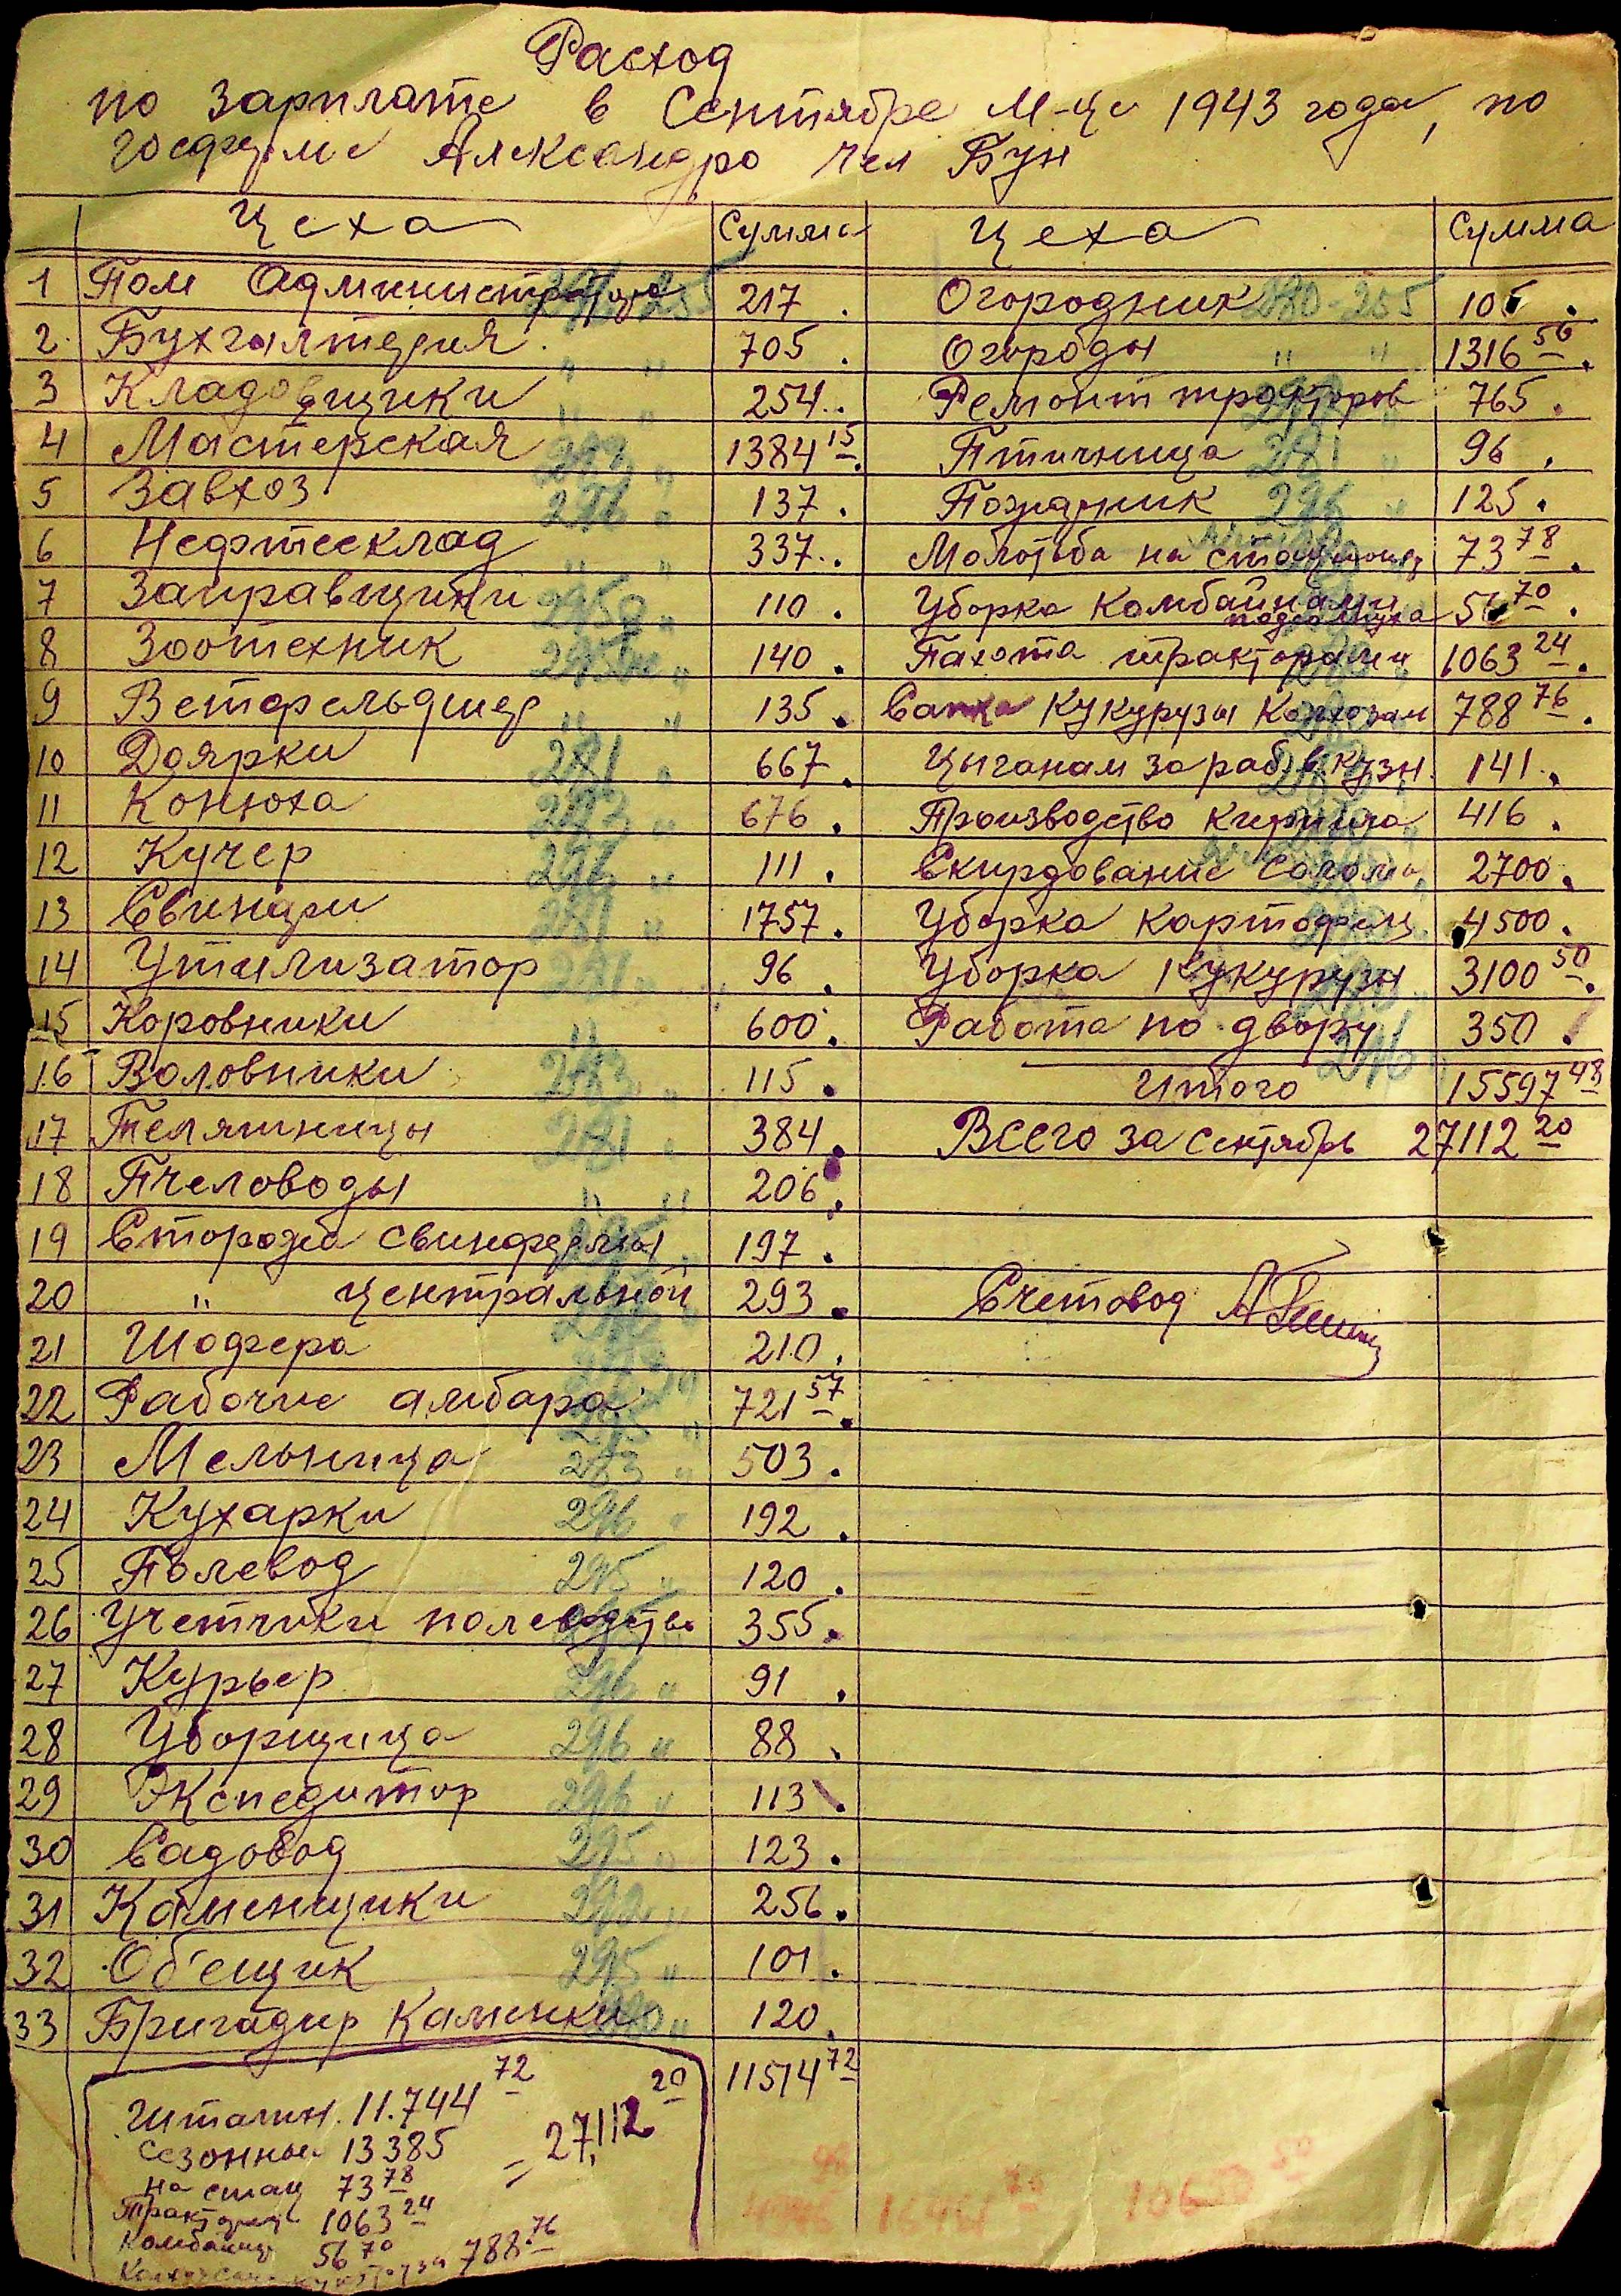 Расход
по зарплате в Сентябре М-це 1943 года, по
госферме Александро чел Бун
Цеха Сумма Цеха Сумма
1 Пом Администрации 217. Огородник 280-255 105.
2. Бухгалтерия " " 705. Огороды " " 1316 56.
3 Кладовщики " " 254. Ремонт тракторов 765.
4 Мастерская 1384 15. Птичница 281 " 96.
5 Завхоз 296 " 137. Пожарник 296 " 125.
6 Нефтесклад " " 337. Молотьба на стационер 73 78.
7 Заправщики 110. Уборка Комбайнами подсолнуха 56 70.
8 Зоотехник 140. Пахота тракторами 1063 24.
9 Ветфельдшер " " 135. Сапка Кукурузы Колхозам 788 76.
10 Доярки 281 " 667. Цыганам за раб. в кузн. 141.
11 Конюха 676. Производство Кирпича 416.
12 Кучер 296 " 111. Скирдование Соломы 2700.
13 Свинари 281 " 1757. Уборка картофеля 4500.
14 Утилизатор 281 " 96. Уборка Кукурузы 3100 50.
15 Коровники " 600. Работа по двору 350.
16 Воловники 283 " 115. Итого 15597 48
17 Телятницы 281 " 384. Всего за сентябрь 27112 20
18 Пчеловоды " " 206.
19 Сторожа свинофермы 197.
20 " центральной 293. Счетовод
21 Шофера 210.
22 Рабочие амбара 721 57.
23 Мельница 283 " 503.
24 Кухарки 296 " 192.
25 Полевод 295 " 120.
26 Учетчики полеводства 355.
27 Курьер 296 " 91.
28 Уборщица 296 " 88.
29 Экспедитор 296 " 113.
30 Садовод 295 " 123.
31 Каменщики 256.
32 Об'ещик 295 " 101.
33 Бригадир Каменки 120.
11514 72
Штатн. 11.744 72
Сезонные 13385 = 27,112 20
на стац 73 78
Трактора 1063 24
Комбайны 56 70
788.76